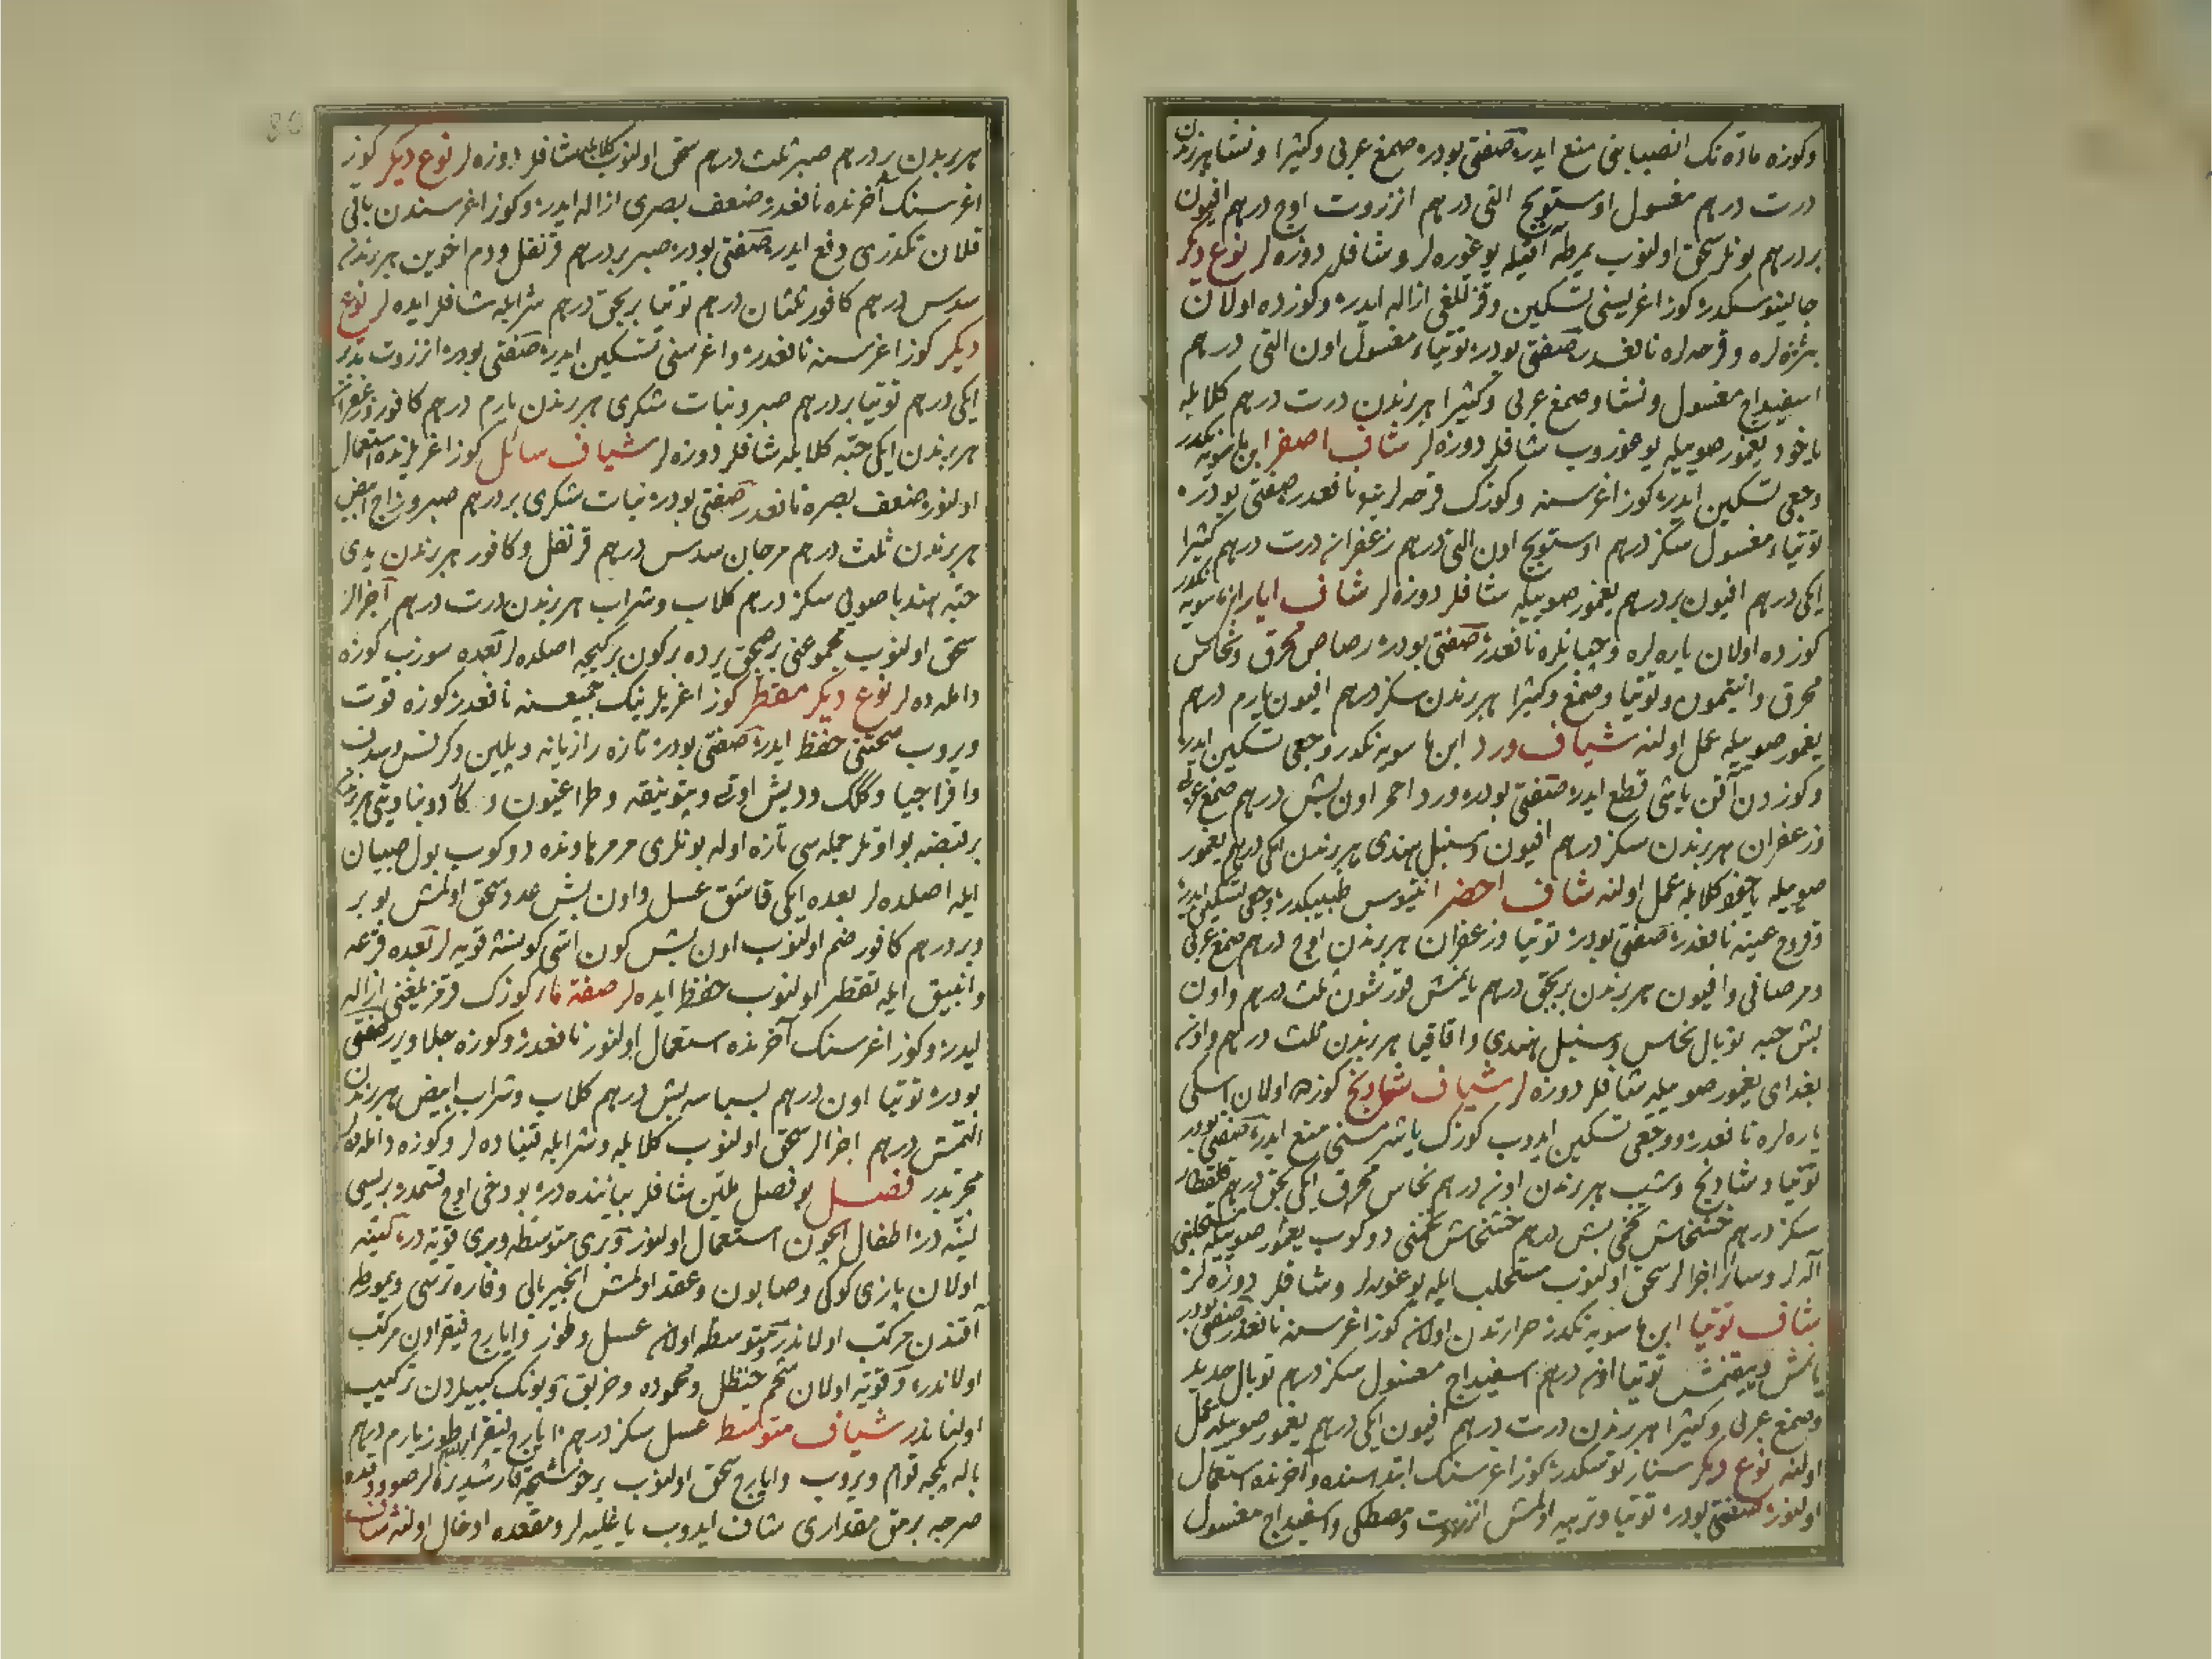 وكوزه ماده نك انصبابنى منع ايدر صفتى بودر صمغ عربى وكثيرا ونشا هر برندن
درت درهم مغسول اوستوبج التى درهم انزروت اوچ درهم افيون
بر درهم بونلر سحق اولنوب يمرطه آقيله يوغوره لر وشافلر دوزه لر نوع ديكر
جالينوسكدر كوز اغريسنى تسكين وقزللغى ازاله ايدر وكوزده اولان
بثره لره وقرحه لره نافعدر صفتى بودر توتياء مغسول اون التى درهم
اسفيداج مغسول ونشا وصمغ عربى وكثيرا هر برندن درت درهم كلابله
ياخود يغمور صوييله يوغوروب شافلر دوزه لر شاف اصفر ابن ماسويه نكدر
وجعى تسكين ايدر كوز اغرسنه وكوزك قرحه لرينه نافعدر صفتى بودر
توتياء مغسول سكز درهم اوستوبج اون التى درهم زعفران درت درهم كثيرا
ايكى درهم افيون بر درهم يغمور صوييله شافلر دوزه لر شاف ابار ابن ماسويه نكدر
كوزده اولان ياره لره وچبانلره نافعدر صفتى بودر رصاص محرق ونحاس
محرق وانتيمون وتوتيا وصمغ وكثيرا هر برندن سكز درهم افيون يارم درهم
يغمور صوييله عمل اولنه شياف ورد ابن ماسويه نكدر وجعى تسكين ايدر
وكوزدن آقن ياشى قطع ايدر صفتى بودر ورد احمر اون بش درهم صمغ عربى
وزعفران هر برندن سكز درهم افيون وسنبل هندى هر برندن ايكى درهم يغمور
صوييله ياخود كلابله عمل اولنه شاف اخضر انتيوس طبيبكدر وجعى تسكين ايدر
وقروح عينه نافعدر صفتى بودر توتيا وزعفران هر برندن اوچ درهم صمغ عربى
ومر صافى وافيون هر برندن بر بچق درهم يانمش قورشون ثلث درهم واون
بش حبه توبال نحاس وسنبل هندى واقاقيا هر برندن ثلث درهم واون
بغداى يغمور صوييله شافلر دوزه لر شياف شادنج كوزده اولان اسكى
ياره لره نافعدر ووجعى تسكين ايدوب كوزك ياشرمسنى منع ايدر صفتى بودر
توتيا وشادنج وشب هر برندن اون درهم نحاس محرق ايكى بچق درهم قلقطار
سكز درهم خشخاش تخمى بش درهم خشخاش تخمنى دوكوب يغمور صوييله مستحلبنى
آله لر وسائر اجزالر سحق اولنوب مستحلب ايله يوغوره لر وشافلر دوزه لر
شاف توتيا ابن ماسويه نكدر حرارتدن اولان كوز اغرسنه نافعدر صفتى بودر
يانمش وييقنمش توتيا اون درهم اسفيداج مغسول سكز درهم توبال حديد
وصمغ عربى وكثيرا هر برندن درت درهم افيون ايكى درهم يغمور صوييله عمل
اولنه نوع ديكر كوز اغرسنك ابتداسنده وآخرنده استعمال
اولنور صفتى بودر توتيا وتربيه اولمش انزروت ومصطكى واسفيداج مغسول
80
هر برندن بر درهم صبر ثلث درهم سحق اولنوب كلابله شافلر دوزه لر نوع ديكر كوز
اغرسنك آخرنده نافعدر ضعف بصرى ازاله ايدر وكوز اغرسندن باقى
قلان تكدرى دفع ايدر صفتى بودر صبر بر درهم قرنفل ودم اخوين هر برندن
سدس درهم كافور ثلثان درهم توتيا بر بچق درهم شرابله شافلر ايده لر نوع
ديكر كوز اغرسنه نافعدر واغرسنى تسكين ايدر صفتى بودر انزروت بدر
ايكى درهم توتيا بر درهم صبر ونبات شكرى هر برندن يارم درهم كافور وزعفران
هر برندن ايكى حبه كلابله شافلر دوزه لر شياف سائل كوز اغريلرنده استعمال
اولنور ضعف بصره نافعدر صفتى بودر نبات شكرى بر درهم صبر وزاج ابيض
هر برندن ثلث درهم مرجان سدس درهم قرنفل وكافور هر برندن يدى
حبه هندبا صويى سكز درهم كلاب وشراب هر برندن درت درهم اجزالر
سحق اولنوب مجموعنى بر صيجق يرده بر كون بر كيجه اصلده لر بعده سوزب كوزه
دامله ده لر نوع ديكر مقطر كوز اغريلرينك جميعسنه نافعدر كوزه قوت
ويروب صحتنى حفظ ايدر صفتى بودر تازه رازيانه وپلين وكرفس وسدف
بر قبضه بو اوتلر جمله سى تازه اوله بونلرى مرمر هاونده دوكوب بول صبيان
ايله اصلده لر بعده ايكى قاشق عسل واون بش عدد سحق اولمش بوبر
وبر درهم كافور ضم اولنوب اون بش كون اسى كونشه قويه لر بعده قرعه
وانبيق ايله تقطير اولنوب حفظ ايده لر صفة ماء كوزك قزيلغنى ازاله
ايدر وكوز اغرسنك آخرنده استعمال اولنور نافعدر وكوزه جلا ويرر صفتى
بودر توتيا اون درهم بسباسه بش درهم كلاب وشراب ابيض هر برندن
التمش درهم اجزالر سحق اولنوب كلابله وشرابله قيناده لر وكوزه دامله ده لر
مجربدر فصل بو فصل ملين شافلر بياننده در بو دخى اوچ قسمدر بريسى
لينه در اطفال ايچون استعمال اولنور وبرى متوسطه وبرى قويه در لينه
اولان پازى كوكى وصابون وعقد اولمش انجير بالى وفاره ترسى ويمورطه
آقندن مركب اولاندر متوسطه اولان عسل وطوز وايارج فيقرادن مركب
اولاندر وقويه اولان شحم حنظل ومحموده وخربق وبونك كبيلردن تركيب
اولناندر شياف متوسط عسل سكز درهم ايارج فيقرا وطوز يارم درهم
باله يكجه قوام ويروب وايارج سحق اولنوب بر خوشجه قارشديره لر
صرجه برمق مقدارى شاف ايدوب ياغليه لر ومقعده ادخال اولنه شاف